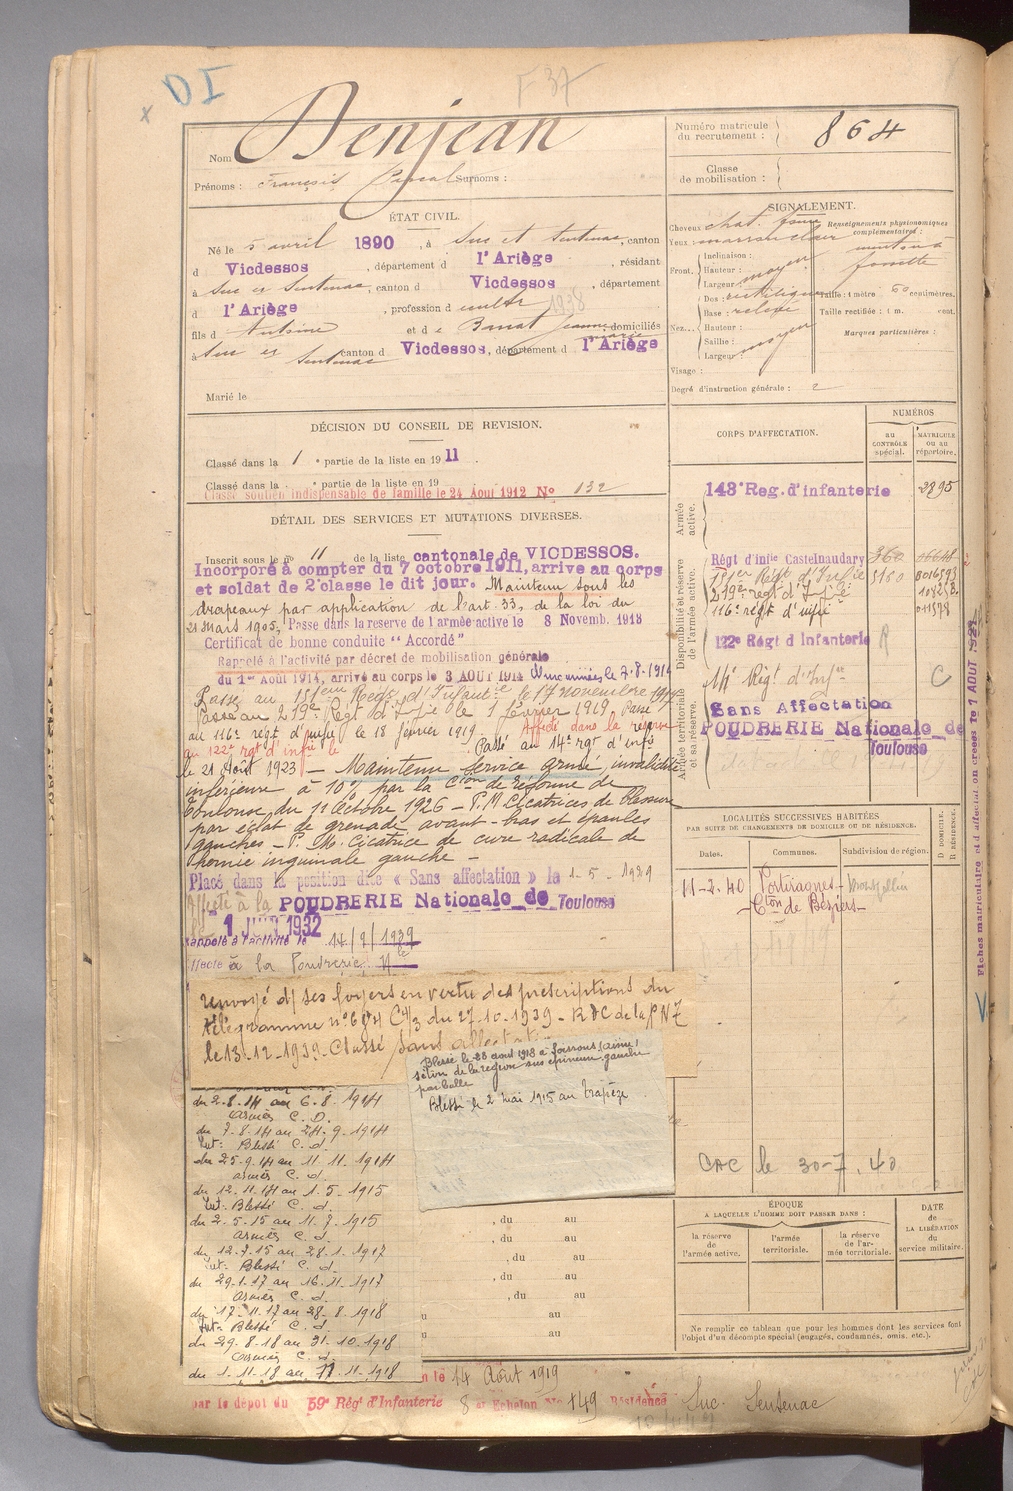 DI
F 37
Nom Denjean
Prénoms : François Pascal Surnoms :
Numéro matricule du recrutement : 864
Classe de mobilisation :
ÉTAT CIVIL.
Né le 5 avril 1890, à Suc et Sentenac, canton
d Vicdessos, département d l'Ariège, résidant
à Suc et Sentenac, canton d Vicdessos, département
d l'Ariège, profession d cultr 1938
fils d Antoine et de Banat Jeanne marie domiciliés
à Suc et Sentenac canton d Vicdessos, département d l'Ariège
Marié le
SIGNALEMENT.
Cheveux chat. foncé
Yeux : marron clair
Renseignements physionomiques complémentaires :
menton à
fossette
Front. Inclinaison :
Hauteur :
Largeur : moyen
Nez... Dos : rectiligne
Base : relevé
Hauteur :
Saillie :
Largeur : moyen
Taille : 1 mètre 60 centimètres.
Taille rectifiée : 1 m. cent.
Marques particulières :
Visage :
Degré d'instruction générale : 2
DÉCISION DU CONSEIL DE REVISION.
Classé dans la 1 e partie de la liste en 1911.
Classé dans la e partie de la liste en 19
Classé soutien indispensable de famille le 24 Aout 1912 No 132
DÉTAIL DES SERVICES ET MUTATIONS DIVERSES.
Inscrit sous le no 11 de la liste cantonale de VICDESSOS.
Incorporé à compter du 7 octobre 1911, arrive au corps
et soldat de 2e classe le dit jour. Maintenu sous les
drapeaux par application de l'art. 33, de la loi du
21 Mars 1905, Passe dans la reserve de l'armée active le 8 Novemb. 1913
Certificat de bonne conduite "Accordé"
Rappelé à l'activité par décret de mobilisation générale
du 1er Aout 1914, arrivé au corps le 3 AOUT 1914 Aux armées le 7-8-1914
Passé au 151eme Regt d'Infantie le 17 novembre 1914
Passé au 219e Régt d'Infie le 1 février 1919. Passé
au 116e régt d'infie le 18 février 1919 Affecté dans la reserve
au 122e rgt d'infie le Passé au 14e rgt d'infie
le 21 Août 1923 – Maintenu service armé, invalidité
inférieure à 10% par la Cion de réforme de
Toulouse du 11 Octobre 1926 – P.M Cicatrices de blessure
par éclat de grenade avant-bras et épaules
gauches – P. M. Cicatrice de cure radicale de
hernie inguinale gauche –
Placé dans la position dite « Sans affectation » le 1-5-1929
Affecté à la POUDRERIE Nationale de Toulouse
le 1 JUIN 1932
Rappelé à l'activité le 14/9/1939
Affecté à la Poudrerie Nle
renvoyé d/ ses foyers en vertu des prescriptions du
télégramme no 6814 C4/3 du 27-10-1939 - RDC de la PNT
le 13-12-1939 - Classé sans affectation
Blessé le 28 aout 1918 à Soissons (aisne)
séton de la region sus épineuse gauche
par balle
Blessé le 2 mai 1915 au trapèze
du 2-8-14 au 6-8-1914
Armées C. D.
du 7-8-14 au 24-9-1914
Int: Blessé C. d.
du 25-9-14 au 11-11-1914
armées C. d.
du 12-11-14 au 1-5-1915
Int. Blessé C. d.
du 2-5-15 au 11-7-1915
Armées C. d.
du 12-7-15 au 28-1-1917
Int: Blessé C. d.
du 29-1-17 au 16-11-1917
Armées C. d.
du 17-11-17 au 28-8-1918
Int: Blessé C. d.
du 29-8-18 au 31-10-1918
Armées C. d.
du 1-11-18 au 11-11-1918
, du au
, du au
, du au
, du au
, du au
au
au
le 14 Août 1919
par le dépôt du 59e Rég' d'Infanterie 8 e Echelon No 149 Résidence Suc. Sentenac
CORPS D'AFFECTATION.
NUMÉROS
AU CONTRÔLE spécial.
MATRICULE OU AU répertoire.
Armée active.
143e Reg. d'infanterie 2895
Disponibilité et réserve de l'armée active.
Régt d'infie Castelnaudary 360
151er Régt d'Infie 5160
219e regt d'Infie
116e régt d'infie
122e Régt d Infanterie R
Armée territoriale et sa réserve.
14e Régt d'Infie C
Sans Affectation
POUDRERIE Nationale de
Toulouse
LOCALITÉS SUCCESSIVES HABITÉES
PAR SUITE DE CHANGEMENTS DE DOMICILE OU DE RÉSIDENCE.
Dates.
Communes.
Subdivision de région.
D DOMICILE.
R RÉSIDENCE.
11-2-40 Portiragnes – Montpellier
Cton de Béziers –
CAC le 30-7-40
ÉPOQUE
A LAQUELLE L'HOMME DOIT PASSER DANS :
la réserve de l'armée active.
l'armée territoriale.
la réserve de l'armée territoriale.
DATE de LA LIBÉRATION du service militaire.
Ne remplir ce tableau que pour les hommes dont les services font
l'objet d'un décompte spécial (engagés, condamnés, omis, etc.).
Fiches matriculaire et d'affectation créées le 1 AOUT 192